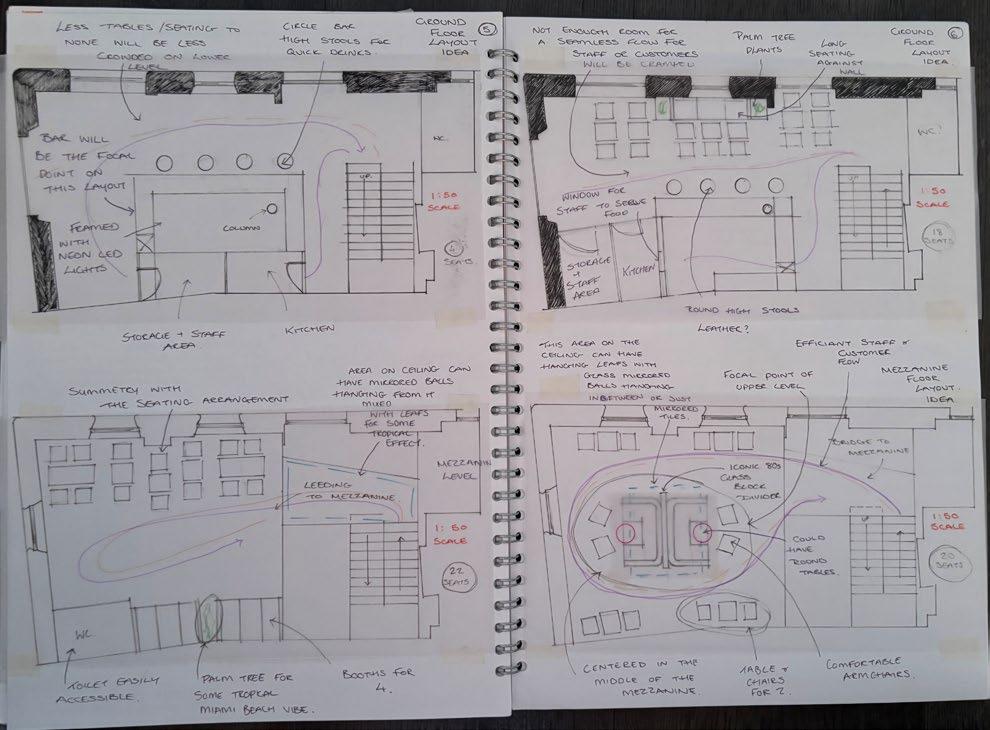 LESS TABLES/SEATING TO
NONE WILL BE LESS
CROWDED ON LOWER
LEVEL
CIRCLE BAR
HIGH STOOLS FOR
QUICK DRINKS.
GROUND
FLOOR
LAYOUT
IDEA
5
BAR WILL
BE THE FOCAL
POINT ON
THIS LAYOUT
FRAMED
WITH
NEON LED
LIGHTS
COLUMN
UP.
WC.
1:50
SCALE
4
SEATS
STORAGE + STAFF
AREA.
KITCHEN
NOT ENOUGH ROOM FOR
A SEAMLESS FLOW FOR
STAFF OR CUSTOMERS
WILL BE CRAMPED
PALM TREE
PLANTS
LONG
SEATING
AGAINST
WALL
GROUND
FLOOR
LAYOUT
IDEA.
6
WC?
WINDOW FOR
STAFF TO SERVE
FOOD
STORAGE
+
STAFF
AREA
KITCHEN
UP
1:50
SCALE
18
SEATS
ROUND HIGH STOOLS
LEATHER?
SYMMETRY WITH
THE SEATING ARRANGEMENT
AREA ON CEILING CAN
HAVE MIRRORED BALLS
HANGING FROM IT
MIXED
WITH LEAFS
FOR SOME
TROPICAL
EFFECT.
MEZZANIN
LEVEL
LEEDING
TO MEZZANINE
1:50
SCALE
22
SEATS
WC.
TOILET EASILY
ACCESSIBLE.
PALM TREE FOR
SOME TROPICAL
MIAMI BEACH VIBE.
BOOTHS FOR
4.
THIS AREA ON THE
CEILING CAN HAVE
HANGING LEAFS WITH
GLASS MIRRORED
BALLS HANGING
INBETWEEN OR JUST
MIRRORED
TILES.
FOCAL POINT OF
UPPER LEVEL
EFFICIANT STAFF +
CUSTOMER
FLOW
MEZZANINE
FLOOR
LAYOUT
IDEA.
BRIDGE TO
MEZZANINE
ICONIC 80s
GLASS
BLOCK
DIVIDER
COULD
HAVE
ROUND
TABLES.
1:50
SCALE
20
SEATS
CENTERED IN THE
MIDDLE OF THE
MEZZANINE.
TABLE +
CHAIRS
FOR 2.
COMFORTABLE
ARMCHAIRS.